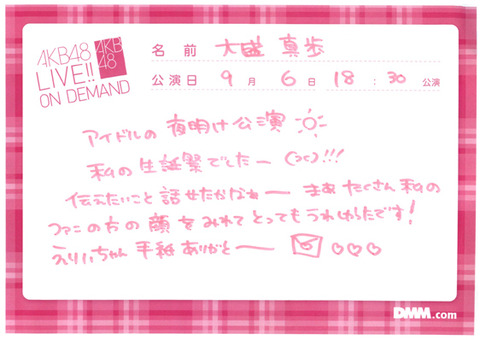 AKB48
LIVE!!
ON DEMAND
AKB
48
名 前 大盛 真歩
公演日 9 月 6 日 18 : 30 公演
アイドルの 夜明け公演
私の 生誕祭でしたー
伝えたいこと 話せたかなぁー まぁ たくさん 私の
ファンの方の 顔を みれて とっても うれしかったです!
えりぃちゃん 手紙 ありがとー
DMM.com